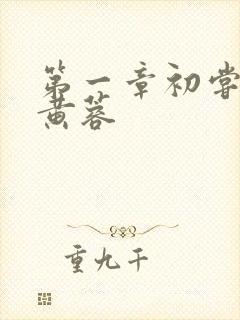 第一章初尝
黄蓉
重九千